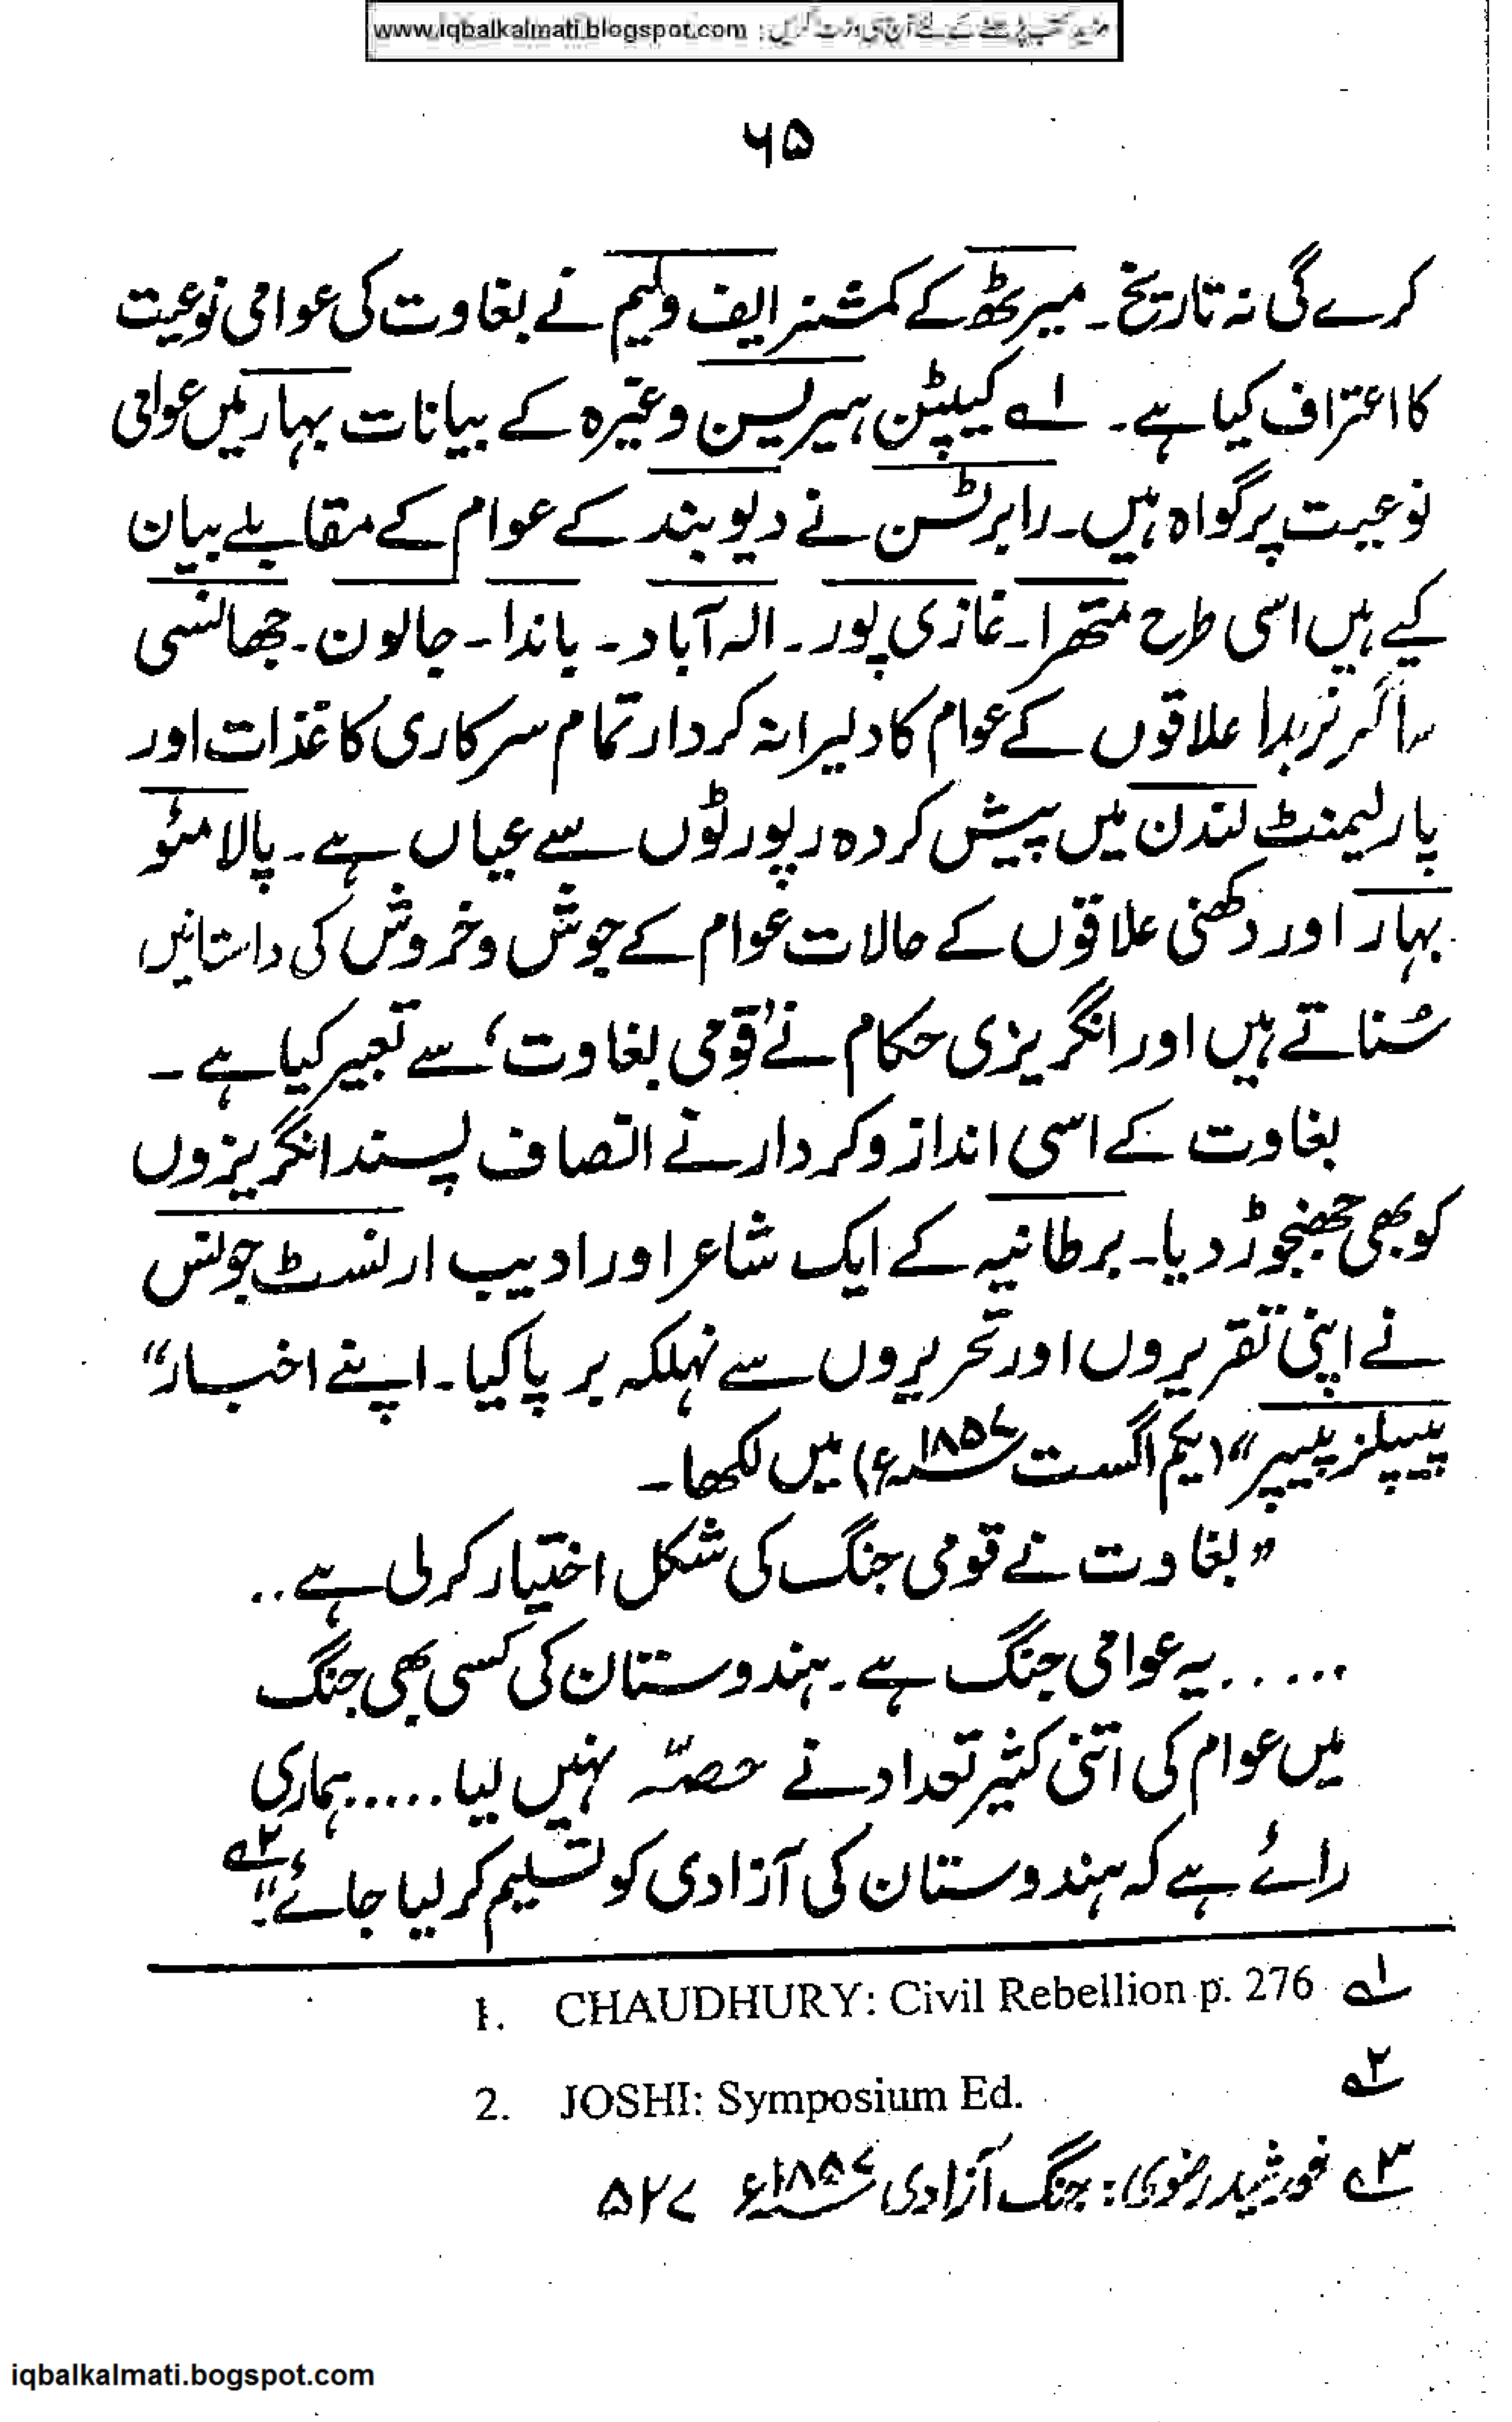 مزید کتب پڑھنے کے لئے آج ہی وزٹ کریں : www.iqbalkalmati.blogspot.com
۶۵
کرے گی نہ تاریخ۔ میرٹھ کے کمشنر ایف ولیم نے بغاوت کی عوامی نوعیت
کا اعتراف کیا ہے۔ ۱ے کیپٹن ہیریسن وغیرہ کے بیانات بہار میں عوامی
نوعیت پر گواہ ہیں۔ رابرٹسن نے دیوبند کے عوام کے مقابلے بیان
کیے ہیں اسی طرح متھرا۔ غازی پور۔ الہ آباد۔ باندا۔ جالون۔ جھانسی
ساگر نربدا علاقوں کے عوام کا دلیرانہ کردار تمام سرکاری کاغذات اور
پارلیمنٹ لندن میں پیش کردہ رپورٹوں سے عیاں ہے۔ پالامئو
بہار اور دکھنی علاقوں کے حالات عوام کے جوش و خروش کی داستانیں
سُناتے ہیں اور انگریزی حکام نے ’قومی بغاوت‘ سے تعبیر کیا ہے ۔
بغاوت کے اسی انداز و کردار نے انصاف پسند انگریزوں
کو بھی جھنجوڑ دیا۔ برطانیہ کے ایک شاعر اور ادیب ارنسٹ جونس
نے اپنی تقریروں اور تحریروں سے تہلکہ برپا کیا۔ اپنے اخبار “
پیپلز پیپر “ (یکم اگست ۱۸۵۷ء) میں لکھا ۔
” بغاوت نے قومی جنگ کی شکل اختیار کر لی ہے ..
..... یہ عوامی جنگ ہے۔ ہندوستان کی کسی بھی جنگ
میں عوام کی اتنی کثیر تعداد نے حصّہ نہیں لیا ..... ہماری
رائے ہے کہ ہندوستان کی آزادی کو تسلیم کر لیا جائے۔“ ۲ے
1. CHAUDHURY: Civil Rebellion p. 276 ۱ے
2. JOSHI: Symposium Ed. ۲ے
۳ے خورشید رضوی: جنگ آزادی ۱۸۵۷ء ۵۲۷
iqbalkalmati.bogspot.com